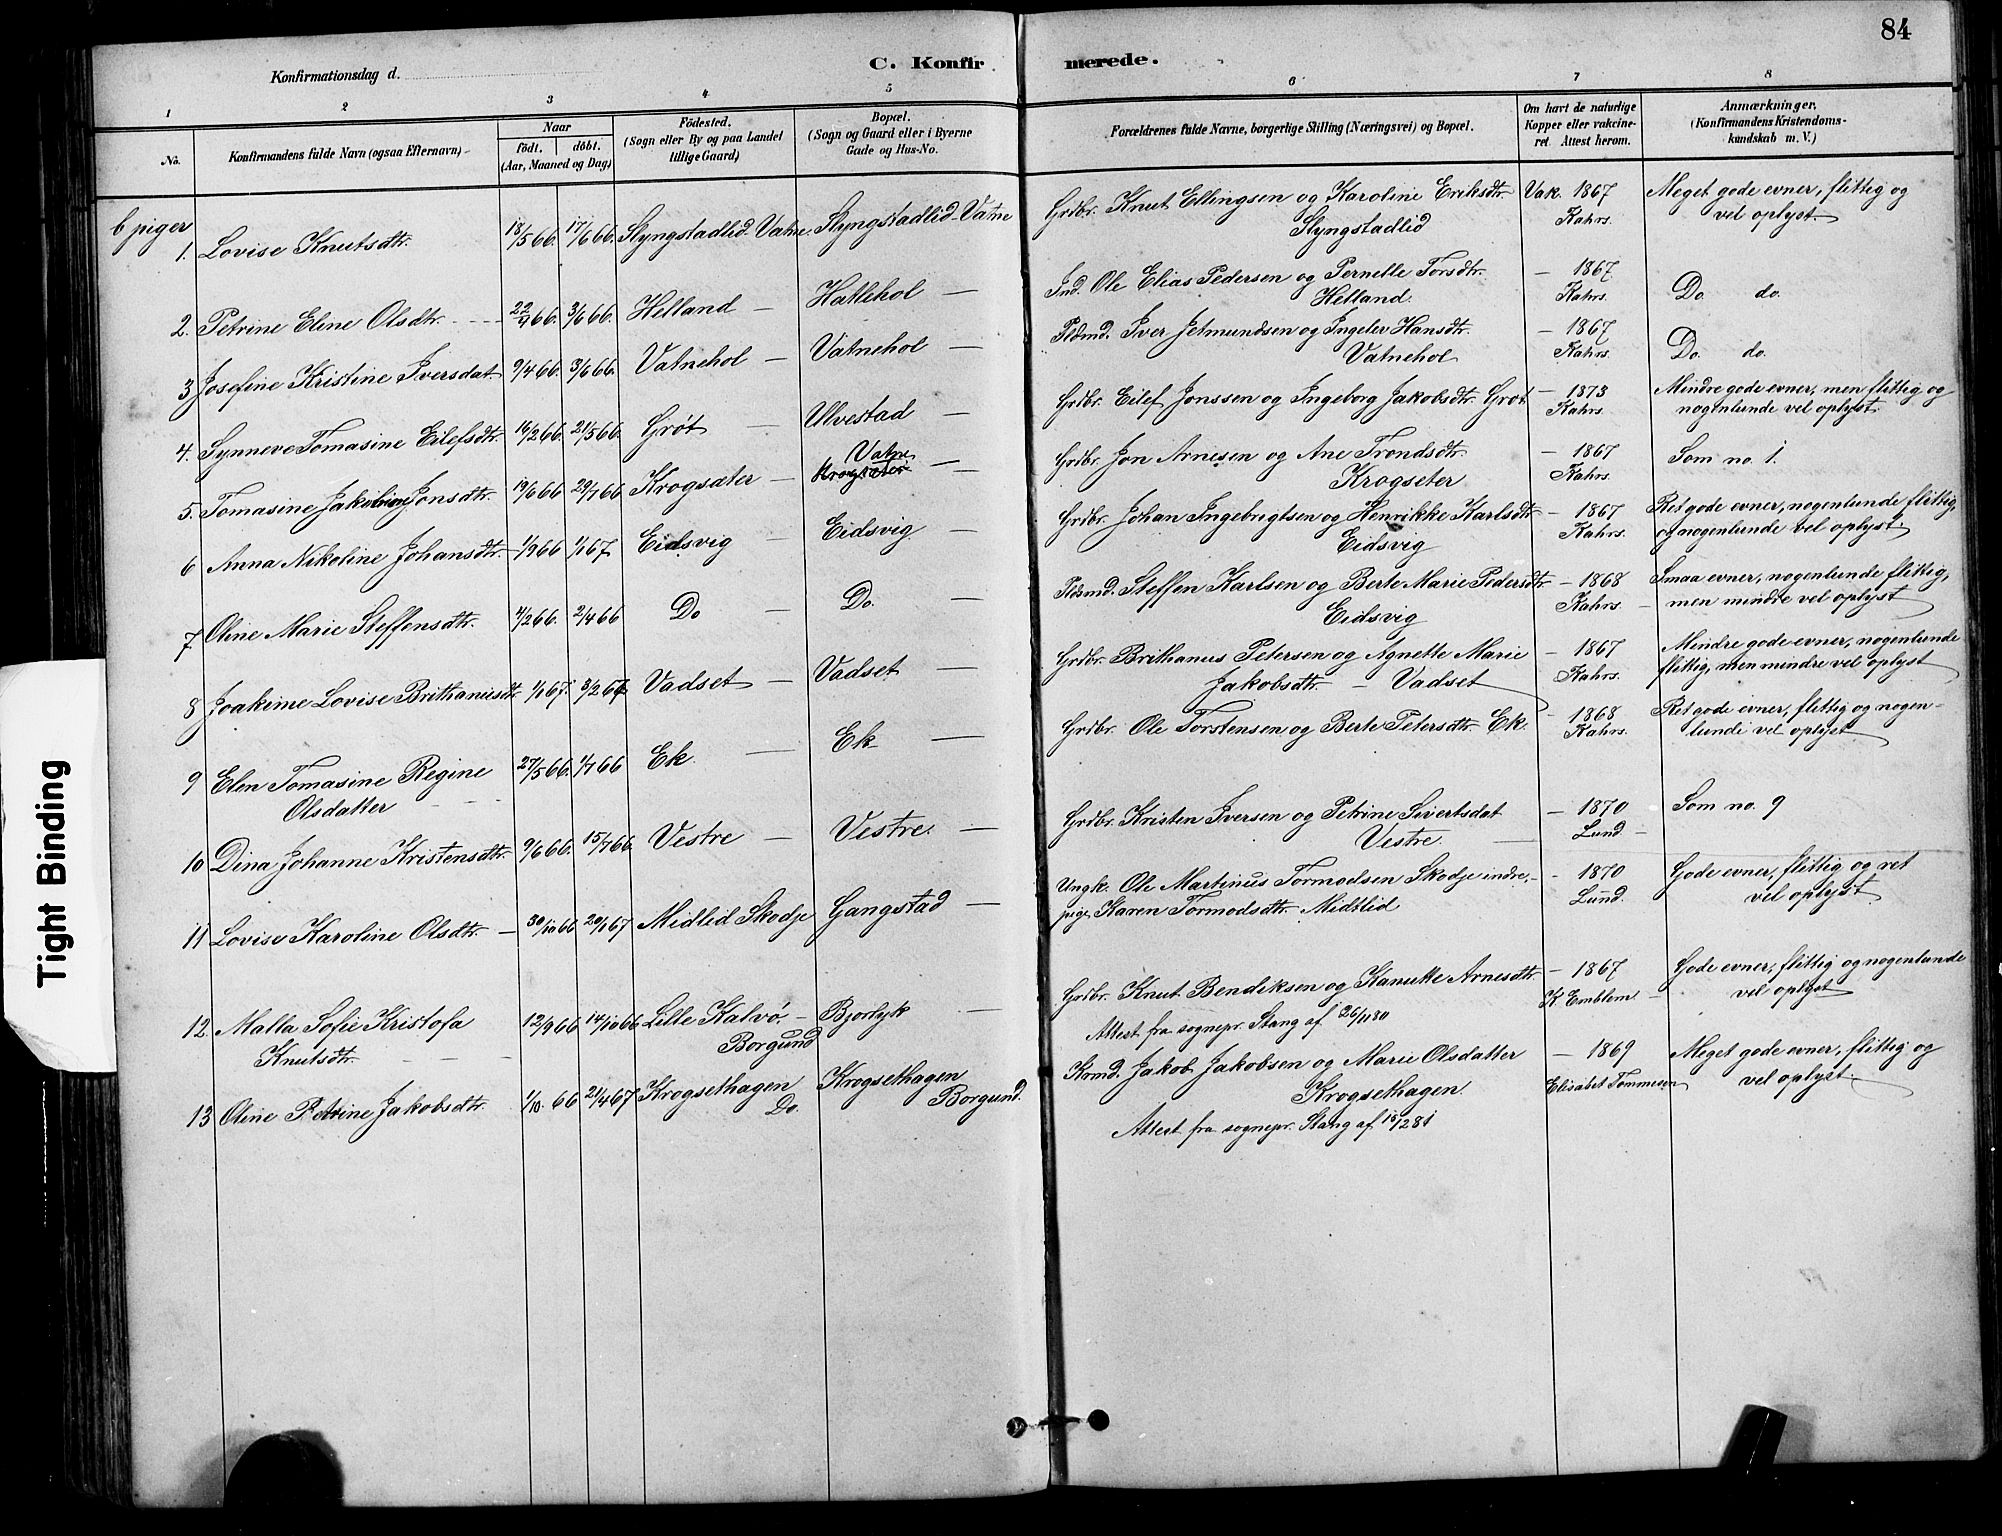 84
C. Konfirmerede.
Konfirmationsdag d.
1 2 3 4 5 6 7 8
No. Konfirmandens fulde Navn (ogsaa Efternavn) Naar födt. döbt. (Aar, Maaned og Dag) Födested. (Sogn eller By og paa Landet tillige Gaard) Bopæl. (Sogn og Gaard eller i Byerne Gade og Hus-No. Forældrenes fulde Navne, borgerlige Stilling (Næringsvei) og Bopæl. Om havt de naturlige Kopper eller vakcineret. Attest herom. Anmærkninger. (Konfirmandens Kristendomskundskab m. V.)
b piger
1. Lovise Knutsdtr. 18/5 66. 17/6 66. Slyngstadlid-Vatne. Slyngstadlid-Vatne Grdbr. Knut Ellingsen og Karoline Eriksdtr. Vak. 1867 Meget gode evner, flittig og
Slyngstadlid Kahrs. vel oplyst.
2. Petrine Eline Olsdtr. 66. 3/6 66. Helland — Hatlehol — Ind. Ole Elias Pedersen og Pernelle Torsdtr. — 1867
Helland. Kahrs. Do. do.
3 Josefine Kristine Iversdat. 9/4 66. 3/6 66. Vatnehol — Vatnehol — Pldmd. Iver Jetmundsen og Ingeler Hansdtr. — 1867
Vatnehol Kahrs. Do. do.
4. Synneve Tomasine Eilefsdtr. 16/2 66. 21/5 66. Grøt — Ulvestad — Grdbr. Eilef Jonssen og Ingeborg Jakobsdtr. Grøt — 1873 Mindre gode evner, men flittig og
Kahrs. nogenlunde vel oplyst.
5. Tomasine Jakobine Jonsdtr. 19/6 66 29/7 66 Krogsæter — Vatne Krogsæter — Grdbr. Jon Arnesen og Ane Trondsdtr. — 1867 Som no. 1.
Krogseter Kahrs.
6 Anna Nikoline Johansdtr. 1/9 66 1/1 67. Eidsvig — Eidsvig — Grdbr. Johan Ingebrigtsen og Henrikke Karlsdtr — 1867 Ret gode evner, nogenlunde flittig,
Eidsvig Kahrs. og nogenlunde vel oplyst.
7 Oline Marie Steffensdtr. 4/2 66. 2/4 66 Do — Do. — Pldsmd. Steffen Karlsen og Berte Marie Pedersdtr — 1868 Smaa evner, nogenlunde flittig,
Eidsvig Kahrs. — men mindre vel oplyst
8 Joakime Lovise Brithanusdtr 1/1 67. 3/2 67 Vadset — Vadset — Grdbr. Brithanus Petersen og Agnette Marie — 1867 Mindre gode evner, nogenlunde
Jakobsdtr. — Vadset Kahrs. flittig, men mindre vel oplyst
9 Elen Tomasine Regine 27/5 66. 1/7 66 Ek — Ek — Grdbr. Ole Torstensen og Berte Petersdtr. Ek. — 1868 Ret gode evner, flittig og nogen-
Olsdatter Kahrs. lunde vel oplyst
10 Dina Johanne Kristensdtr. 9/6 66. 15/7 66. Vestre — Vestre. — Grdbr. Kristen Iversen og Petrine Sivertsdat — 1870 Som no. 9
Vestre. Lund —
11 Lovise Karoline Olsdtr. — 30/10 66 20/1 67 Midlid Skodje Gangstad — Ungk. Ole Martinus Tormodsen Skodje indre, — 1870 Gode evner, flittig og ret
pige, Karen Tormodsdtr. Midtlid Lund. vel oplyst.
12. Malla Sofie Kristofa 12/9 66 14/10 66 Lille Kalvö. — Bjorlyk — Grdbr. Knut Bendiksen og Kanutte Arnesdtr — 1867 Gode evner, flittig og nogenlunde
Knutsdtr. Borgund K Emblem — vel oplyst
Attest fra sognepr. Stang af 26/11 80
13 Oline Petrine Jakobsdtr. 1/10. 66 21/4 67 Krogsethagen Krogsethagen Krmd. Jakob Jakobsen og Marie Olsdatter — 1869 Meget gode evner, flittig og
Do. Borgund. Krogsethagen. Elisabet Tommesen vel oplyst.
Attest fra sognepr. Stang af 15/2 81
Tight Binding